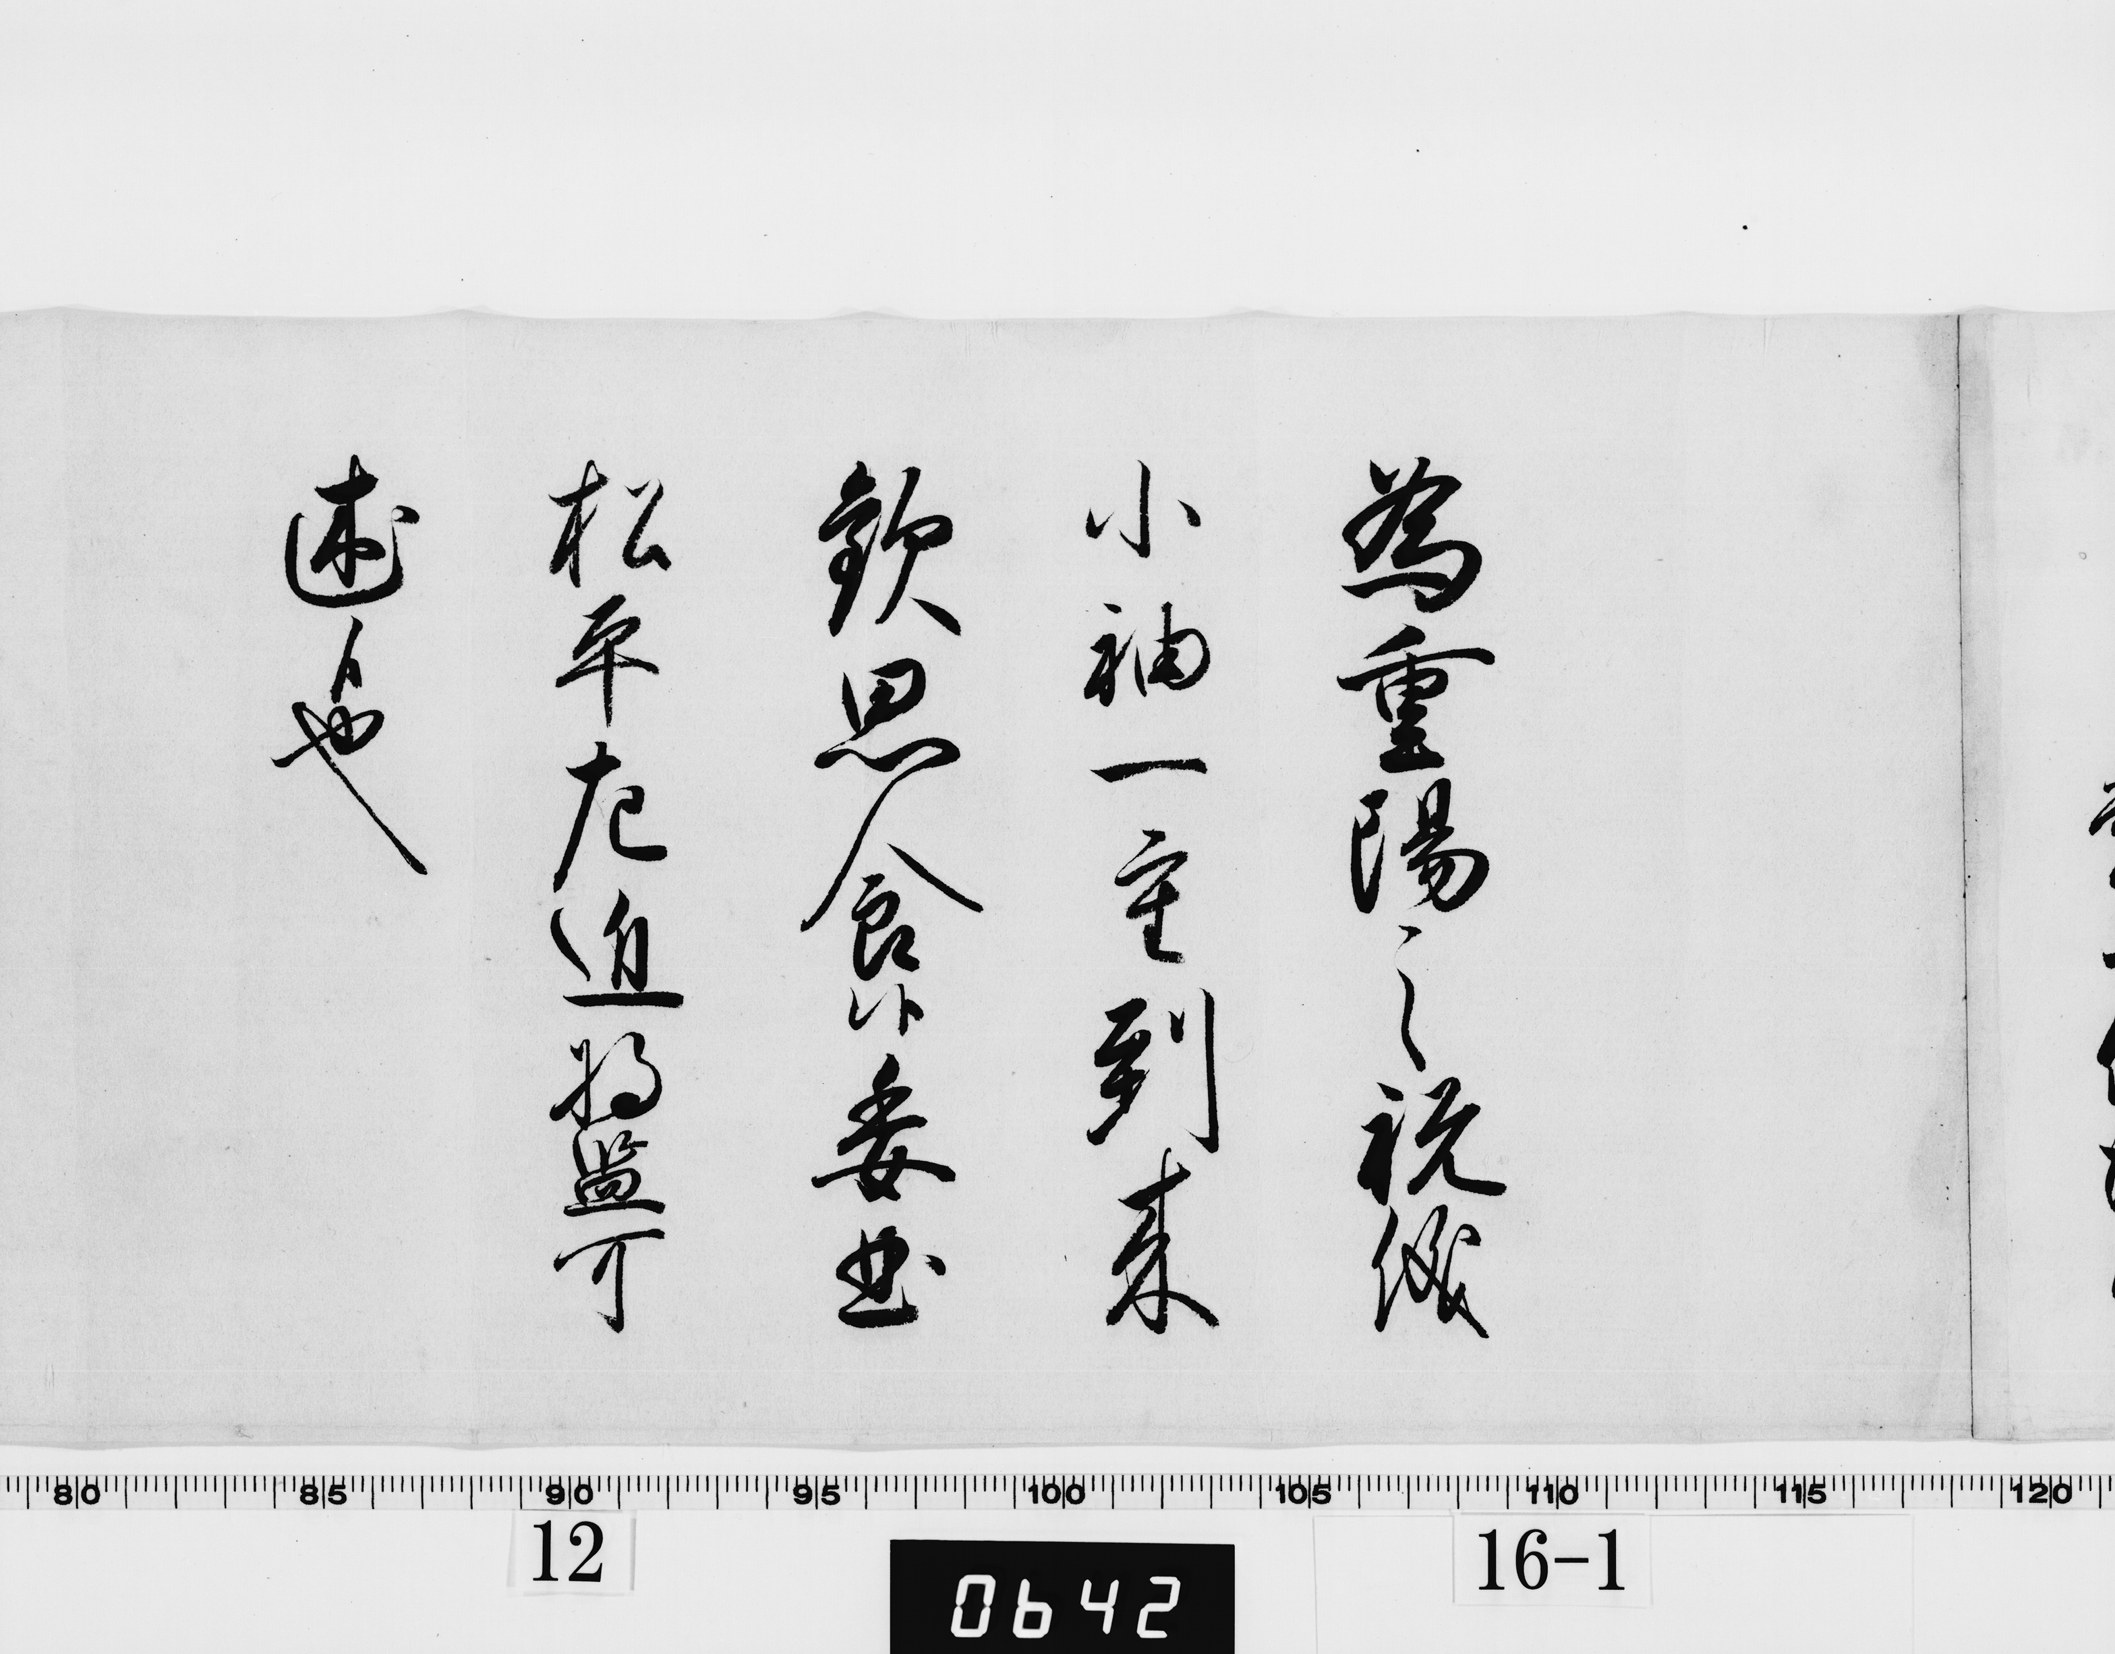 為重陽之祝儀
小袖一重到来
歓思食候委曲
松平左近将監可
述候也
80 85 90 95 100 105 110 115 120
12
0642
16-1